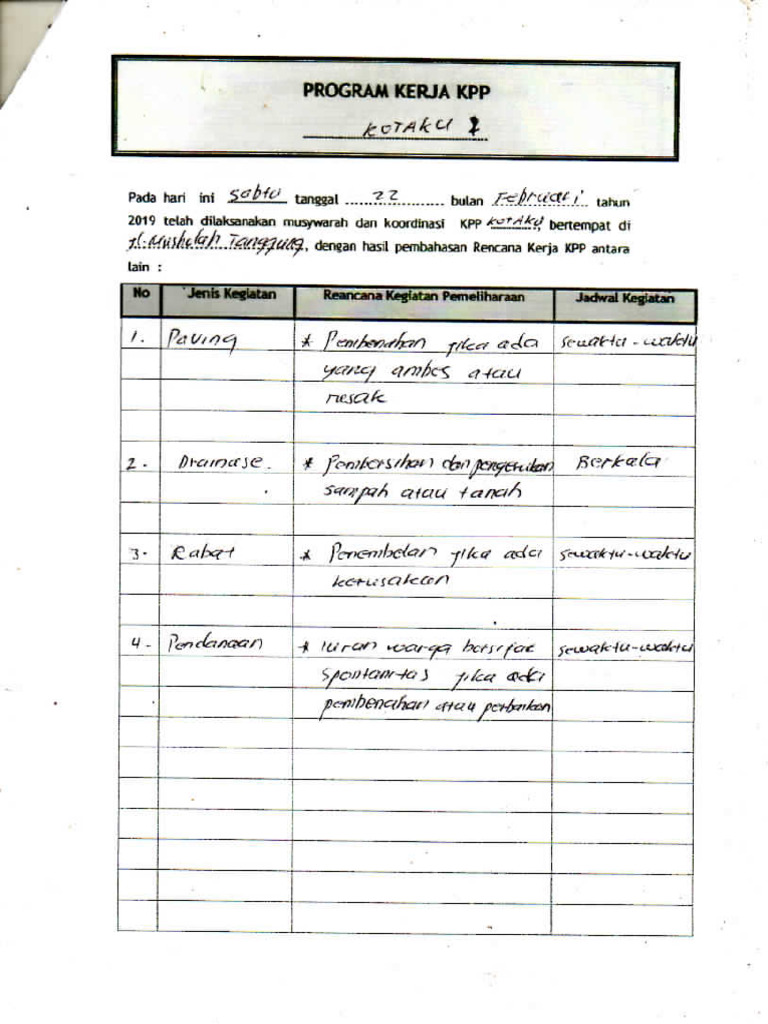 PROGRAM KERJA KPP
KOTAKU 1
Pada hari ini Sabtu tanggal 22 bulan Februari tahun
2019 telah dilaksanakan musywarah dan koordinasi KPP KOTAKU, bertempat di
Jl. Musholah Tanggung, dengan hasil pembahasan Rencana Kerja KPP antara
lain :
No Jenis Kegiatan Reancana Kegiatan Pemeliharaan Jadwal Kegiatan
1. Paving * Pembenahan jika ada sewaktu-waktu
yang ambles atau
rusak
2. Drainase. * Pembersihan dan pengerukan Berkala
sampah atau tanah
3. Rabat * Penembelan jika ada sewaktu-waktu
kerusakan
4. Pendanaan * Iuran warga bersifat sewaktu-waktu
spontanitas jika ada
pembenahan atau perbaikan